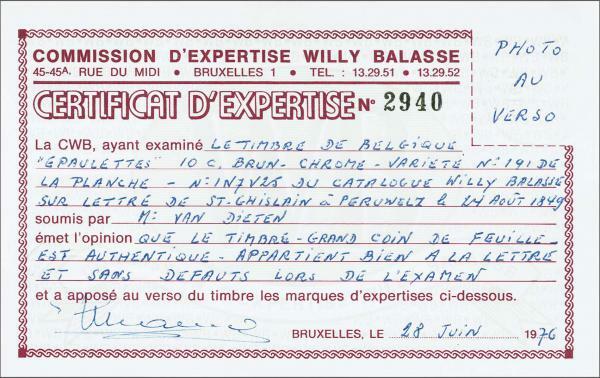 COMMISSION D'EXPERTISE WILLY BALASSE
45-45A. RUE DU MIDI • BRUXELLES 1 • TEL. : 13.29.51 • 13.29.52
PHOTO
AU
VERSO
CERTIFICAT D'EXPERTISE No 2940
La CWB, ayant examiné LE TIMBRE DE BELGIQUE
"EPAULETTES" 10 C. BRUN-CHROME-VARIETÉ N°191 DE
LA PLANCHE - N° 1N7V25 DU CATALOGUE WILLY BALASSE
SUR LETTRE DE ST-GHISLAIN à PERUWELZ le 24 AOÛT 1849
soumis par Mr VAN DIETEN
émet l'opinion QUE LE TIMBRE-GRAND COIN DE FEUILLE-
EST AUTHENTIQUE - APPARTIENT BIEN A LA LETTRE
ET SANS DEFAUTS LORS DE L'EXAMEN
et a apposé au verso du timbre les marques d'expertises ci-dessous.
BRUXELLES, LE 28 JUIN 1976